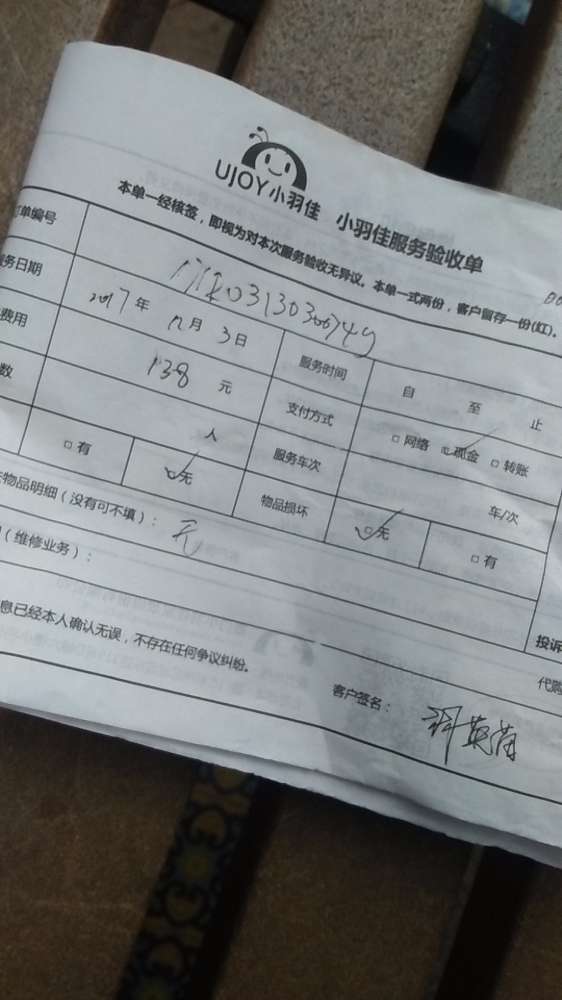 UJOY小羽佳 小羽佳服务验收单
本单一经核签，即视为对本次服务验收无异议。本单一式两份，客户留存一份(红)。
订单编号
服务日期 2017年 12月 3日 服务时间 自 至 止
费用 138 元 支付方式 □网络 ☑现金 □转账
数 人 服务车次 车/次
□有 ☑无 物品损坏 ☑无 □有
物品明细（没有可不填）： 无
（维修业务）：
投诉
息已经本人确认无误，不存在任何争议纠纷。
代购
客户签名：